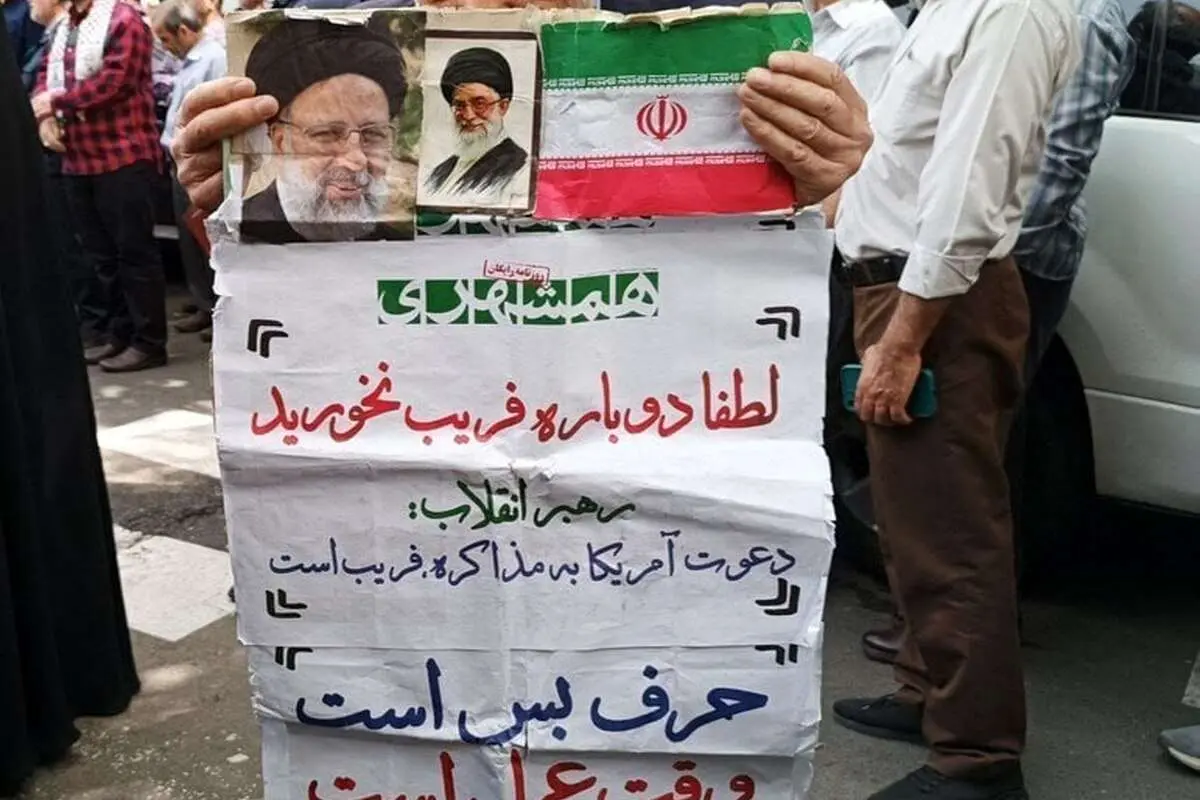 روزنامه رایگان
همشهری
لطفا دوباره فریب نخورید
رهبر انقلاب:
دعوت آمریکا به مذاکره، فریب است
حرف بس است
وقت عمل است